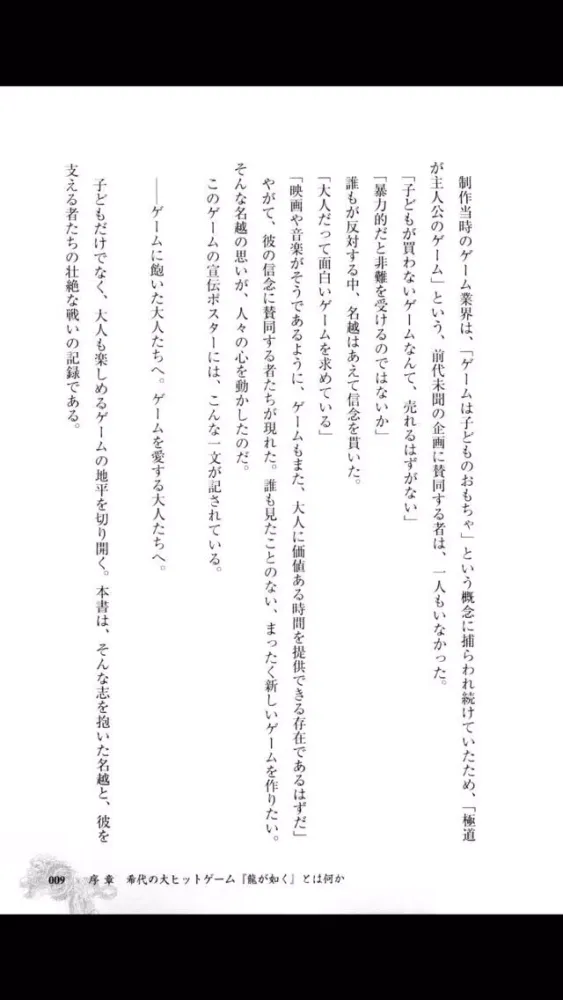 制作当時のゲーム業界は、「ゲームは子どものおもちゃ」という概念に捕らわれ続けていたため、「極道
が主人公のゲーム」という、前代未聞の企画に賛同する者は、一人もいなかった。
「子どもが買わないゲームなんて、売れるはずがない」
「暴力的だと非難を受けるのではないか」
誰もが反対する中、名越はあえて信念を貫いた。
「大人だって面白いゲームを求めている」
「映画や音楽がそうであるように、ゲームもまた、大人に価値ある時間を提供できる存在であるはずだ」
やがて、彼の信念に賛同する者たちが現れた。誰も見たことのない、まったく新しいゲームを作りたい。
そんな名越の思いが、人々の心を動かしたのだ。
このゲームの宣伝ポスターには、こんな一文が記されている。
――ゲームに飽いた大人たちへ。ゲームを愛する大人たちへ。
子どもだけでなく、大人も楽しめるゲームの地平を切り開く。本書は、そんな志を抱いた名越と、彼を
支える者たちの壮絶な戦いの記録である。
009 序章 希代の大ヒットゲーム『龍が如く』とは何か